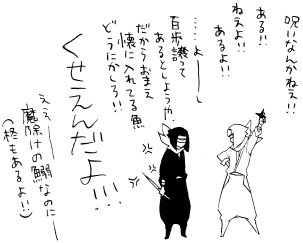 呪いなんかねぇ!!
ある!!
ねえよ!!
あるよ!!
……よーし
百歩譲って
あるとしようや
だからおまえ
懐に入れてる魚
どうにかしろ!!
くせえんだよ!!!
えぇ——
魔除けの鰯なのにー
(柊もあるよ!!)